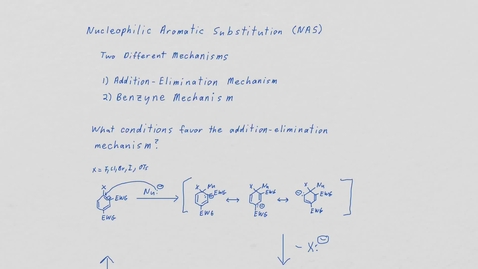 Nucleophilic Aromatic Substitution (NAS)
Two Different Mechanisms
1) Addition-Elimination Mechanism
2) Benzyne Mechanism
What conditions favor the addition-elimination
mechanism?
X = F, Cl, Br, I, OTs
X Nu⊖ X Nu X Nu X Nu
EWG EWG EWG EWG
EWG EWG EWG EWG
- X:⊖